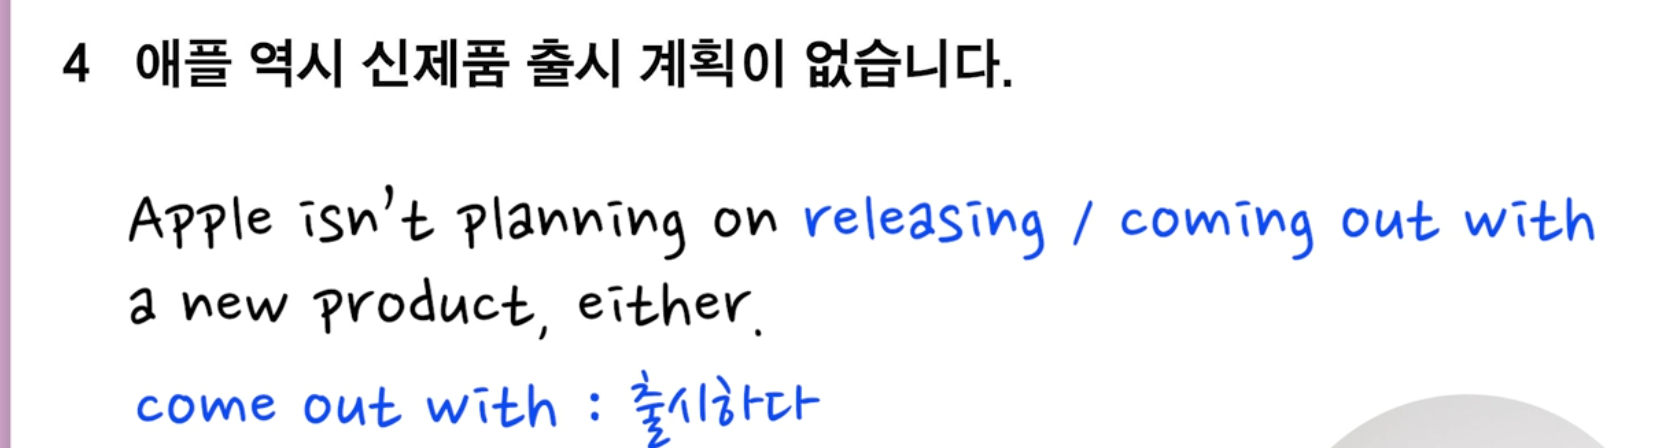 4 애플 역시 신제품 출시 계획이 없습니다.
Apple isn't planning on releasing / coming out with
a new product, either.
come out with : 출시하다